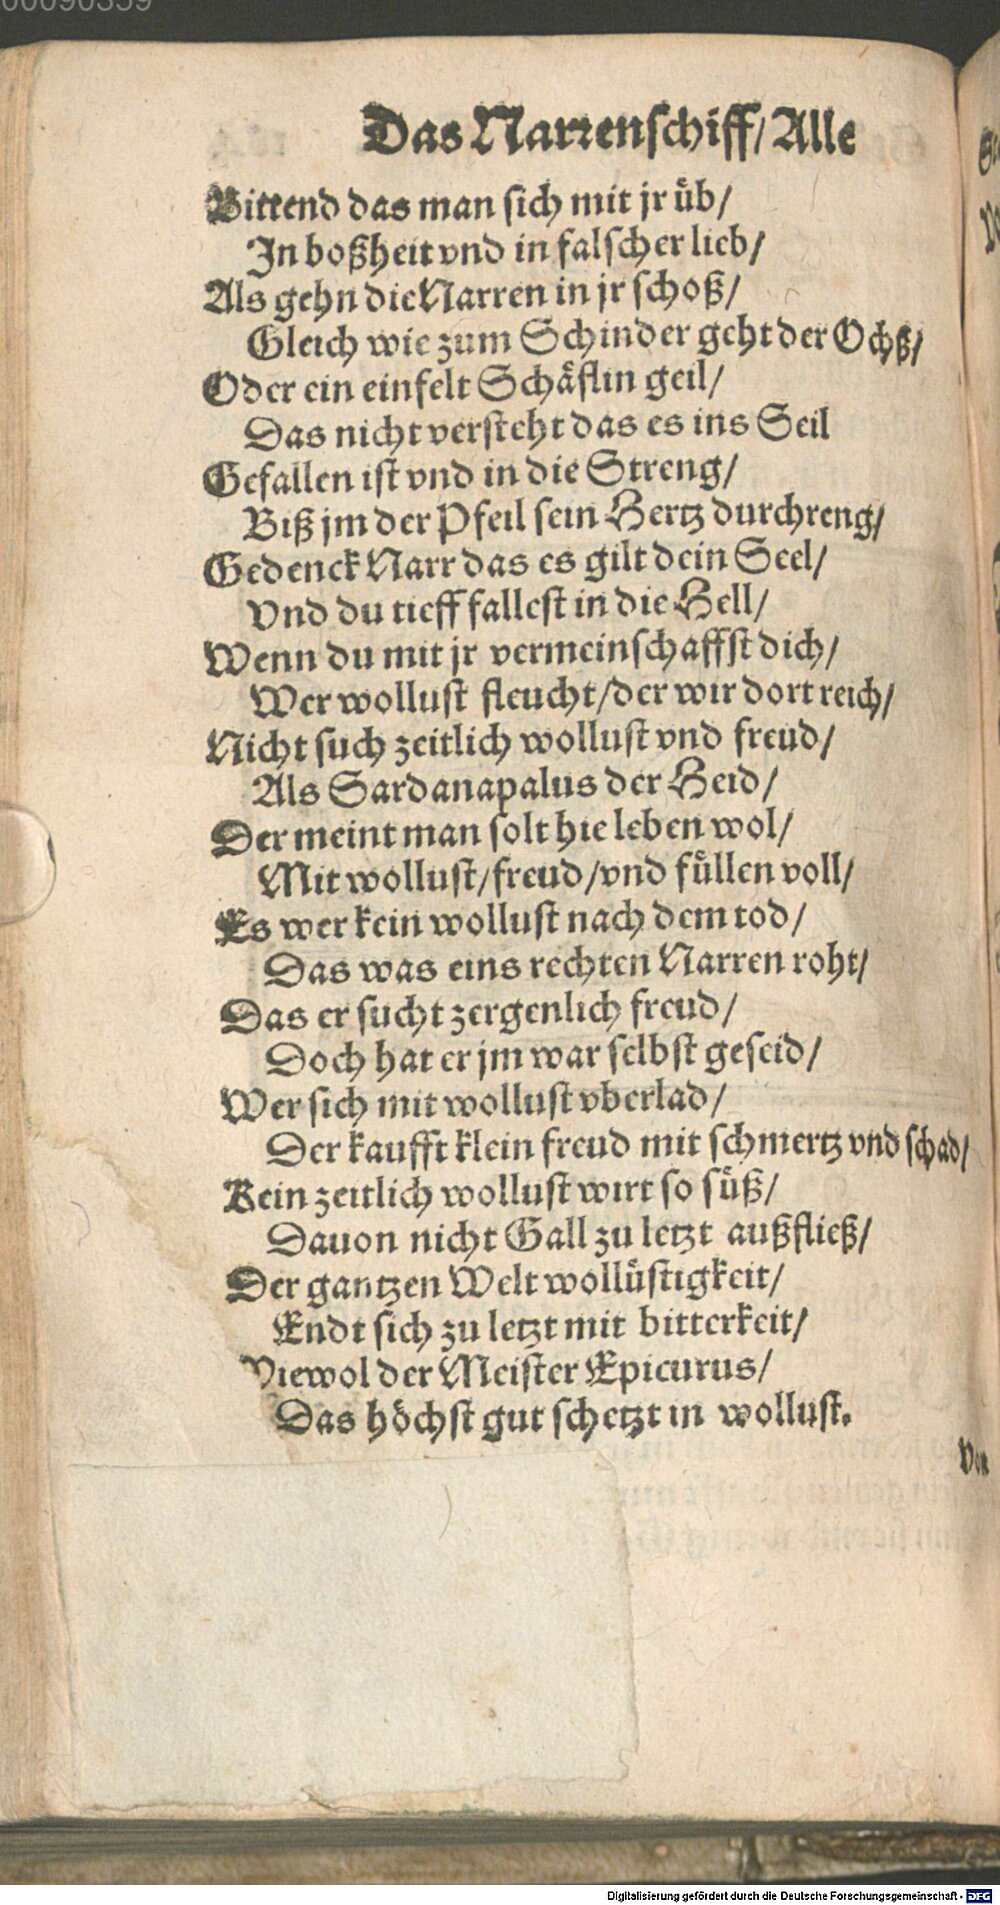 00090359
Das Narrenschiff/ Alle
Bittend das man sich mit jr üb/
In boßheit vnd in falscher lieb/
Als gehn die Narren in jr schoß/
Gleich wie zum Schinder geht der Ochß/
Oder ein einfelt Schäflin geil/
Das nicht versteht das es ins Seil
Gefallen ist vnd in die Streng/
Biß jm der Pfeil sein Hertz durchreng/
Gedenck Narr das es gilt dein Seel/
Vnd du tieff fallest in die Hell/
Wenn du mit jr vermeinschaffst dich/
Wer wollust fleucht/ der wir dort reich/
Nicht such zeitlich wollust vnd freud/
Als Sardanapalus der Heid/
Der meint man solt hie leben wol/
Mit wollust/ freud/ vnd füllen voll/
Es wer kein wollust nach dem tod/
Das was eins rechten Narren roht/
Das er sucht zergenlich freud/
Doch hat er jm war selbst geseid/
Wer sich mit wollust vberlad/
Der kaufft klein freud mit schmertz vnd schad/
Kein zeitlich wollust wirt so süß/
Dauon nicht Gall zu letzt außfließ/
Der gantzen Welt wollüstigkeit/
Endt sich zu letzt mit bitterkeit/
Wiewol der Meister Epicurus/
Das höchst gut schetzt in wollust.
Von
Digitalisierung gefördert durch die Deutsche Forschungsgemeinschaft - DFG